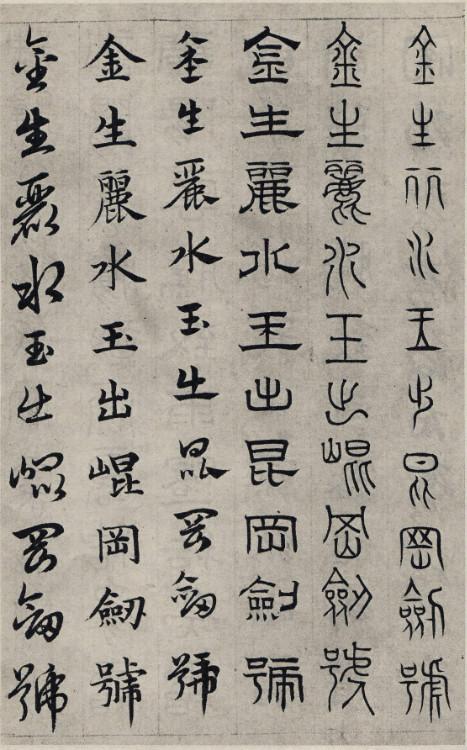 金生丽水玉出昆岡劒號
金生麗水玉出崐岡劒號
金生麗水玉出昆岡劍號
金生麗水玉出昆岡劒號
金生麗水玉出崐岡劒號
金生麗水玉出崐岡劒號